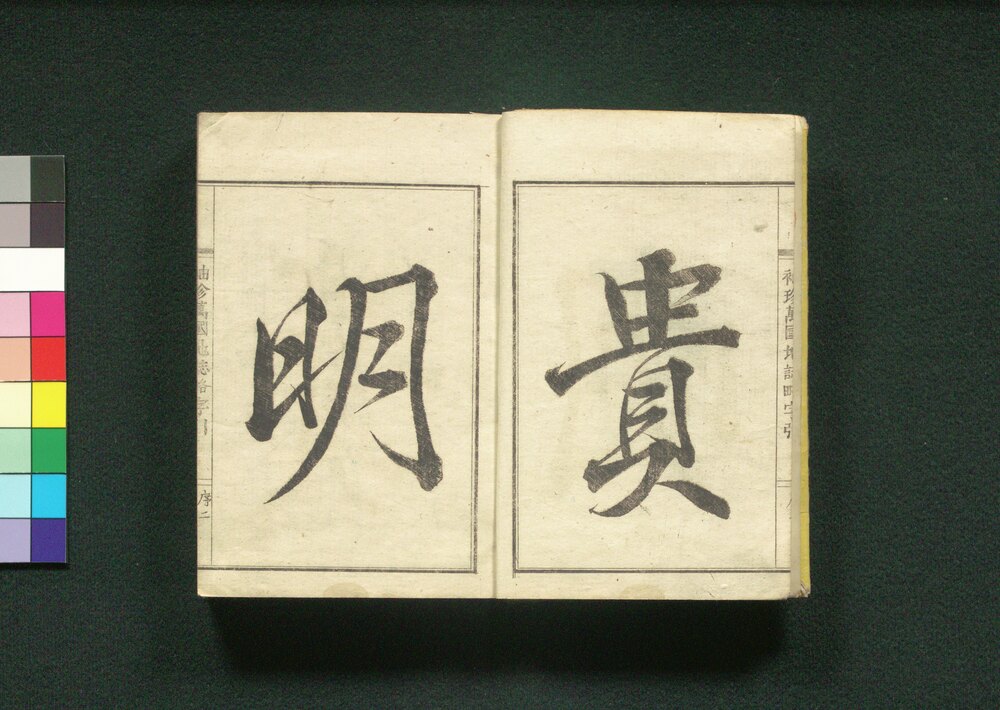 袖珍萬國地誌略字引
貴
明
袖珍萬國地誌略字引
序二